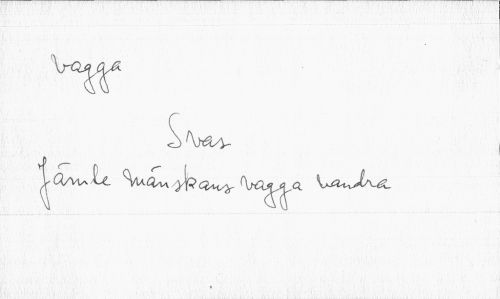 vagga
Svas
Jämte månskans vagga vandra